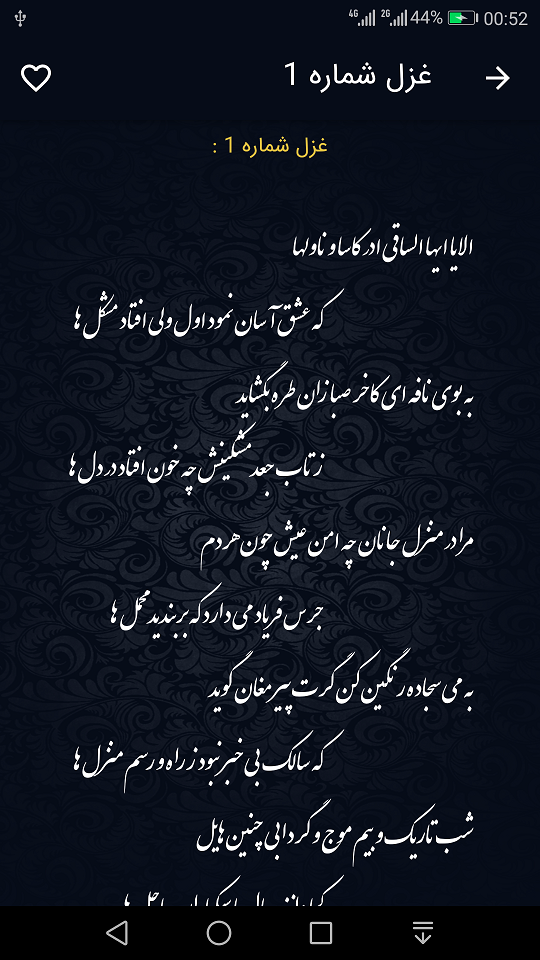 4G 2G 44% 00:52
غزل شماره 1
غزل شماره 1 :
الا یا ایها الساقی ادر کاسا و ناولها
که عشق آسان نمود اول ولی افتاد مشکل ها
به بوی نافه ای کاخر صبا زان طره بگشاید
ز تاب جعد مشکینش چه خون افتاد در دل ها
مرا در منزل جانان چه امن عیش چون هر دم
جرس فریاد می دارد که بربندید محمل ها
به می سجاده رنگین کن گرت پیر مغان گوید
که سالک بی خبر نبود ز راه و رسم منزل ها
شب تاریک و بیم موج و گردابی چنین هایل